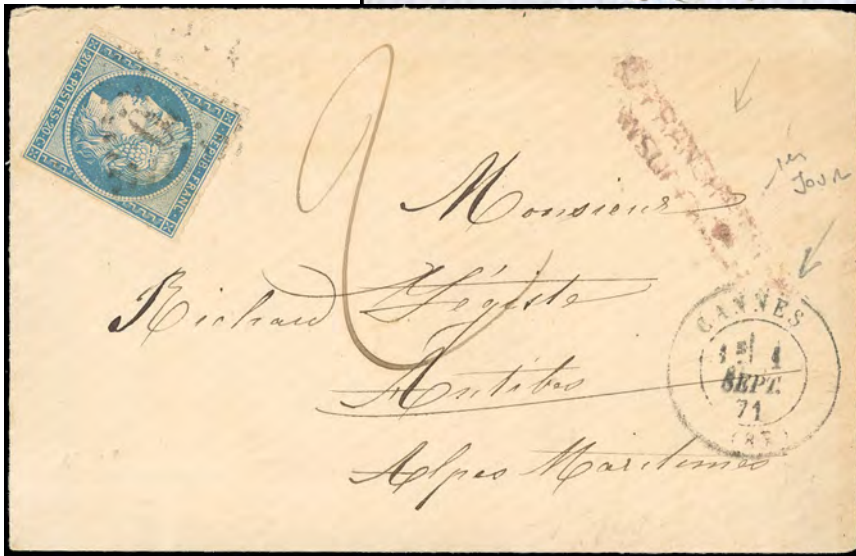 20·C·POSTES·20·C
REPUB·FRANC·
2
AFFRANCHISSEMENT
INSUFFISANT
1er
Jour
Monsieur
Richaud Légiste
Antibes
Alpes Maritimes
CANNES
1
SEPT.
71
(87)